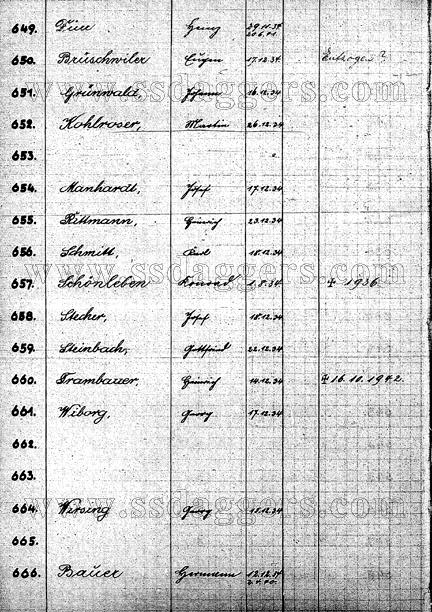 649. Franz 29.11.34.
20.6.41.
650. Brüschwiler Eugen 17.12.34. ?
www.ssdaggers.com
651. Grünwald, Johann 16.12.34
652. Kohlroser, Martin 26.12.34
653.
654. Manhardt, Josef 17.12.34
655. Rittmann, Heinrich 23.12.34
656. Schmitt, Karl 18.12.34
www.ssdaggers.com
657. Schönleben Konrad 1.8.34. ✠ 1936.
658. Stecher, Josef 18.12.34
659. Steinbach, Gottfried 22.12.34
660. Trambauer, Heinrich 14.12.34 ✠ 16.10.1942.
661. Wiborg, Georg 17.12.34
662.
663.
www.ssdaggers.com
664. Wirsing Georg 18.12.34
665.
666. Bauer Hermann 12.12.34